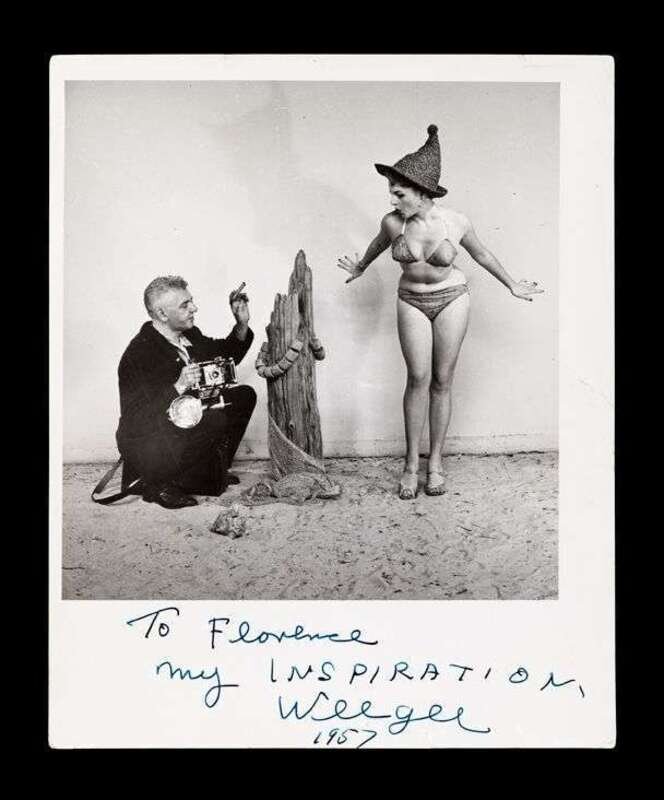 To Florence
my INSPIRATION,
Weegee
1957